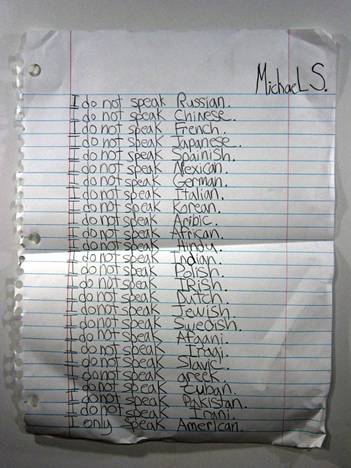 MichaeL S.
I do not speak Russian.
I do not speak Chinese.
I do not speak French.
I do not speak Japanese.
I do not speak Spainish.
I do not speak Mexican.
I do not speak German.
I do not speak Italian.
I do not speak Korean.
I do not speak Aribic.
I do not speak African.
I do not speak Hindu.
I do not speak Indian.
I do not speak Polish.
I do not speak IRish.
I do not speak Dutch.
I do not speak Jewish.
I do not speak Swedish.
I do not speak Afgani.
I do not speak Iraqi.
I do not speak Slavic.
I do not speak greek.
I do not speak Cuban.
I do not speak Pakistan.
I do not speak Irani.
I only speak American.